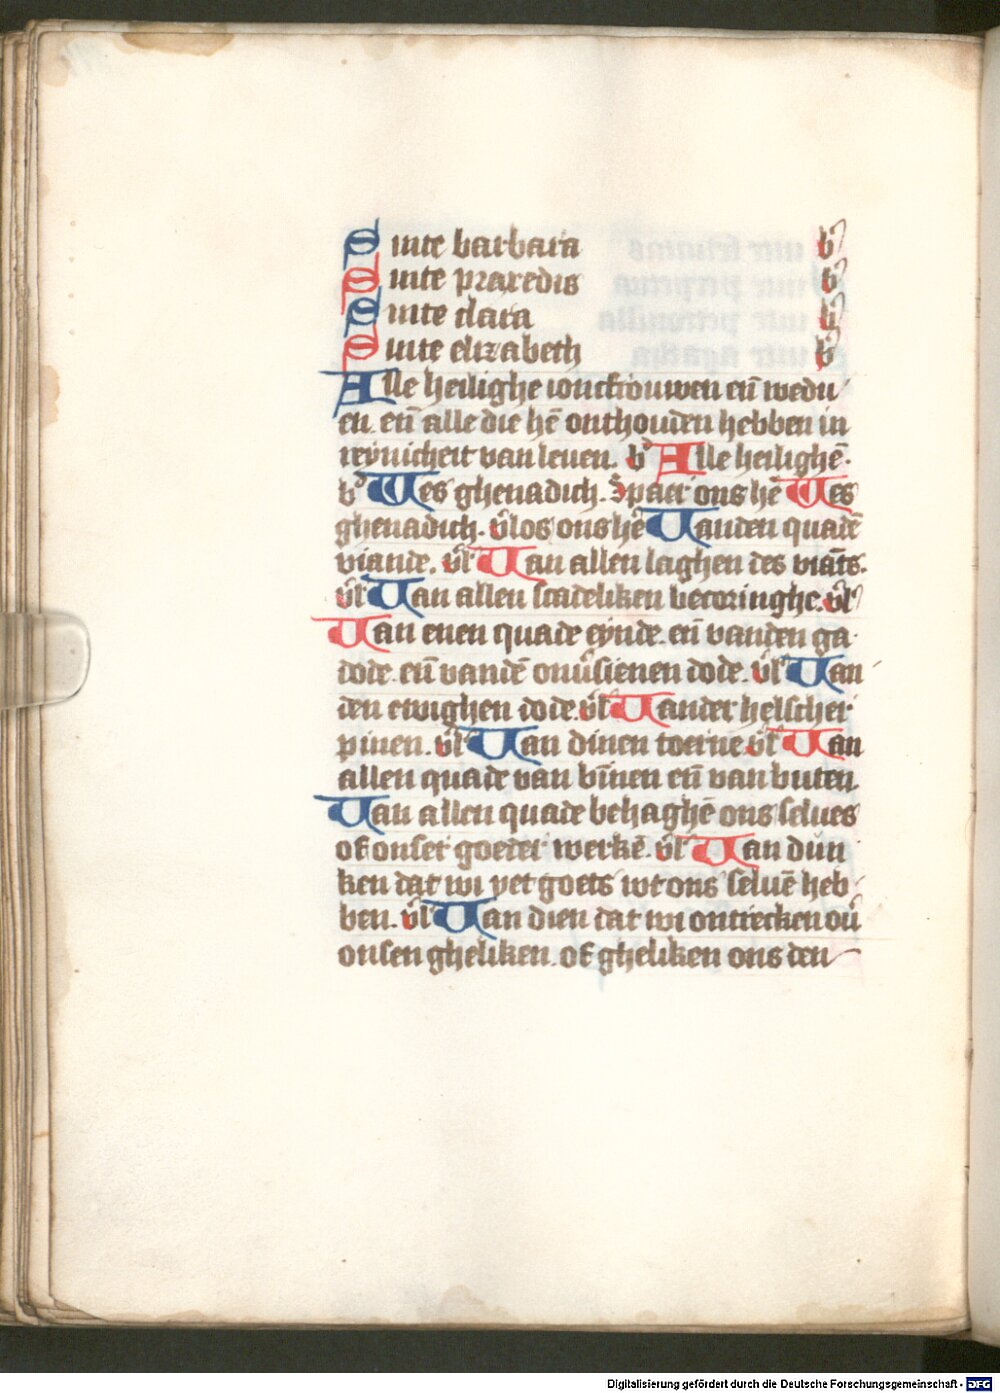 Sinte barbara b
Sinte praxedis b
Sinte clara b
Sinte elizabeth b
Alle heilighe ioncfrouwen eñ wedu
en. eñ alle die hē onthouden hebben in
reynicheit van leuen. b Alle heilighē.
b Wes ghenadich. Spaer ons hē Wes
ghenadich. v̄los ons hē Uanden quadē
viande. v̄l Uan allen laghen des viāts.
v̄l Uan allen scadeliken becoringhe. v̄l
Uan enen quade eynde. eñ vanden ga
dode. eñ vandē onv̄sienen dode. v̄l Uan
den ewighen dode. v̄l Uander helscher
pinen. v̄l Uan dinen toerne. v̄l Uan
allen quade van bīnen eñ van buten
Uan allen quade behaghē ons selues
of onser goeder werkē. v̄l Uan dun
ken dat wi yet goets wt ons seluē heb
ben. v̄l Uan dien dat wi ontrecken ou̅
onsen gheliken. of gheliken ons den
Digitalisierung gefördert durch die Deutsche Forschungsgemeinschaft - DFG